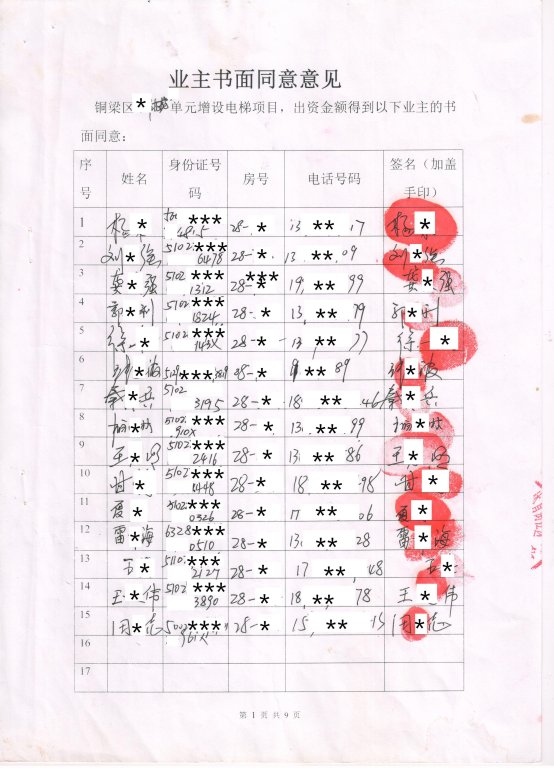 业主书面同意意见
铜梁区*单元增设电梯项目，出资金额得到以下业主的书
面同意：
序号 姓名 身份证号码 房号 电话号码 签名（加盖手印）
1 杨* *** 4815 28-* 13 ** 17 杨*
2 刘*强 5102 *** 6478 28-* 13 ** 09 刘*强
3 龚*强 5102 *** 1312 28-*** 19 ** 99 龚*强
4 郭*利 5102 *** 1824 28-* 13 ** 79 郭*利
5 徐* 5102 *** 143X 28-* 13 ** 77 徐*
6 *** 28-* ** 89
7 秦*兵 5102 3195 28-* 18 ** 46 秦*兵
8 杨* 5102 *** 910X 28-* 13 ** 99 杨*
9 王* 5102 *** 2416 28-* 13 ** 86 王*
10 甘* 5102 *** 1448 28-* 18 ** 98 甘*
11 夏* 5102 *** 0326 28-* 17 ** 06 夏*
12 雷*海 6328 *** 0510 28-* 13 ** 28 雷*海
13 王* 5110 *** 2127 28-* 17 ** 48 王*
14 王*伟 5102 *** 3890 28-* 18 ** 78 王*伟
15 周*志 5002 *** 961X 28-* 15 ** 13 周*志
16
17
第 1 页 共 9 页